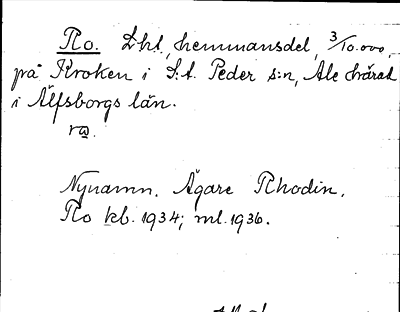 Ro. Lht, hemmansdel, 3/10.000,
på Kroken i S:t. Peder s:n, Ale härad
i Älfsborgs län.
rω.
Nynamn. Ägare Rhodin.
Ro kb. 1934; ml. 1936.